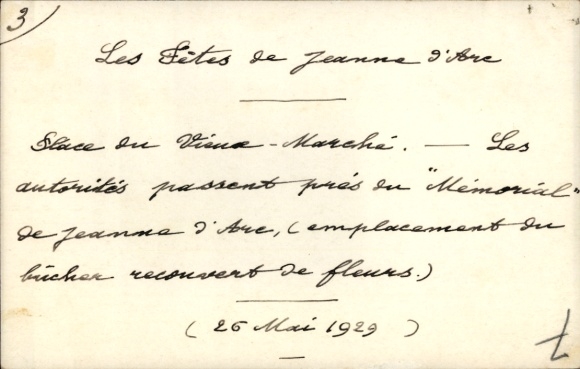 3)
Les Fêtes de Jeanne d'Arc
Place du Vieux-Marché. — Les
autorités passent près du "Mémorial"
de Jeanne d'Arc, (emplacement du
bûcher recouvert de fleurs.)
(26 Mai 1929)